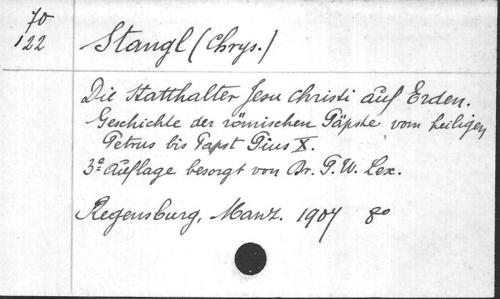 70
122
Stangl (Chrys.)
Die Statthalter Jesu Christi auf Erden.
Geschichte der römischen Päpste vom heiligen
Petrus bis Papst Pius X.
3e Auflage besorgt von Dr. P. W. Lex.
Regensburg, Manz. 1907 8o